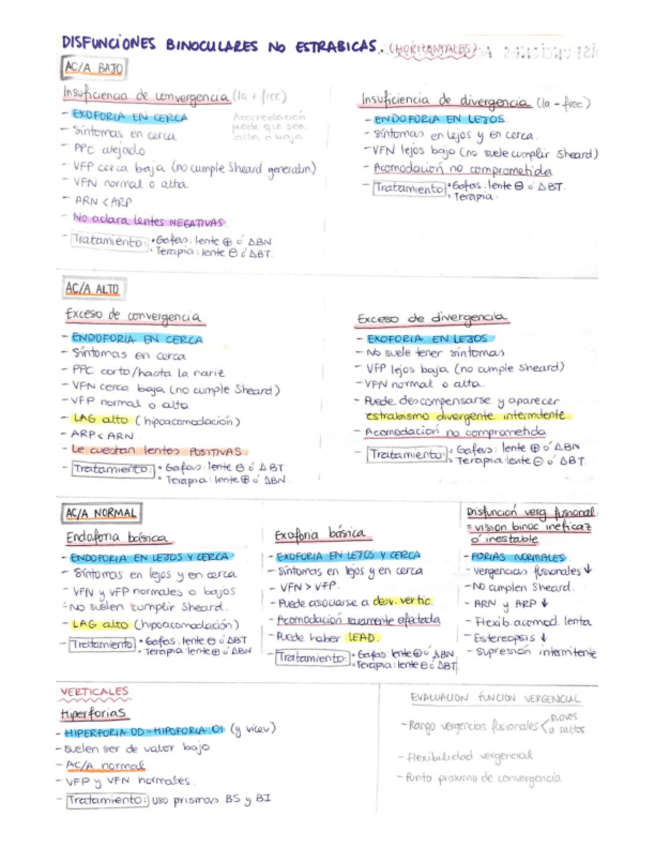 DISFUNCIONES BINOCULARES NO ESTRABICAS. (HORIZONTALES)
AC/A BAJO
Insuficiencia de convergencia (la + frec)
- EXOFORIA EN CERCA
Acomodación
puede que sea
alta o baja
- Síntomas en cerca
- PPC alejado
- VFP cerca baja (no cumple Sheard generalm)
- VFN normal o alta.
- ARN < ARP
- No aclara lentes NEGATIVAS.
- Tratamiento: • Gafas: lente ⊕ ó ΔBN
• Terapia: lente ⊖ ó ΔBT.
Insuficiencia de divergencia (la - frec)
- ENDOFORIA EN LEJOS.
- Síntomas en lejos y en cerca.
- VFN lejos bajo (no suele cumplir Sheard)
- Acomodación no comprometida
- Tratamiento • Gafas: lente ⊖ ó ΔBT.
• Terapia.
AC/A ALTO
Exceso de convergencia
- ENDOFORIA EN CERCA
- Síntomas en cerca
- PPC corto/hasta la nariz
- VFN cerca baja (no cumple Sheard)
- VFP normal o alta
- LAG alto (hipoacomodación)
- ARP < ARN
- Le cuestan lentes POSITIVAS.
- Tratamiento: • Gafas: lente ⊕ ó ΔBT
• Terapia: lente ⊕ ó ΔBN.
Exceso de divergencia
- EXOFORIA EN LEJOS.
- No suele tener síntomas
- VFP lejos baja (no cumple Sheard)
- VFN normal o alta.
- Puede descompensarse y aparecer
estrabismo divergente intermitente.
- Acomodación no comprometida
- Tratamiento: • Gafas: lente ⊕ ó ΔBN
• Terapia lente ⊖ ó ΔBT.
AC/A NORMAL
Endoforia básica
- ENDOFORIA EN LEJOS Y CERCA.
- Síntomas en lejos y en cerca
- VFN y VFP normales o bajos
- No suelen cumplir Sheard.
- LAG alto (hipoacomodación)
- Tratamiento • Gafas: lente ⊖ ó ΔBT
• Terapia: lente ⊕ ó ΔBN
Exoforia básica
- EXOFORIA EN LEJOS Y CERCA
- Síntomas en lejos y en cerca
- VFN > VFP.
- Puede asociarse a desv. vertic.
- Acomodación raramente afectada
- Puede haber LEAD.
- Tratamiento: • Gafas: lente ⊕ ó ΔBN.
• Terapia: lente ⊖ ó ΔBT
Disfunción verg. fusional.
= visión binoc ineficaz
ó inestable
- FORIAS NORMALES.
- vergencias fusionales ↓
- No cumplen Sheard.
- ARN y ARP ↓
- Flexib. acomod. lenta
- Estereopsis ↓
- Supresión intermitente
VERTICALES
Hiperforias
- HIPERFORIA OD = HIPOFORIA OI (y vicev)
- suelen ser de valor bajo
- AC/A normal
- VFP y VFN normales.
- Tratamiento: uso prismas BS y BI
EVALUACIÓN FUNCIÓN VERGENCIAL
- Rango vergencias fusionales < suaves
a saltos
- Flexibilidad vergencial
- Punto próximo de convergencia